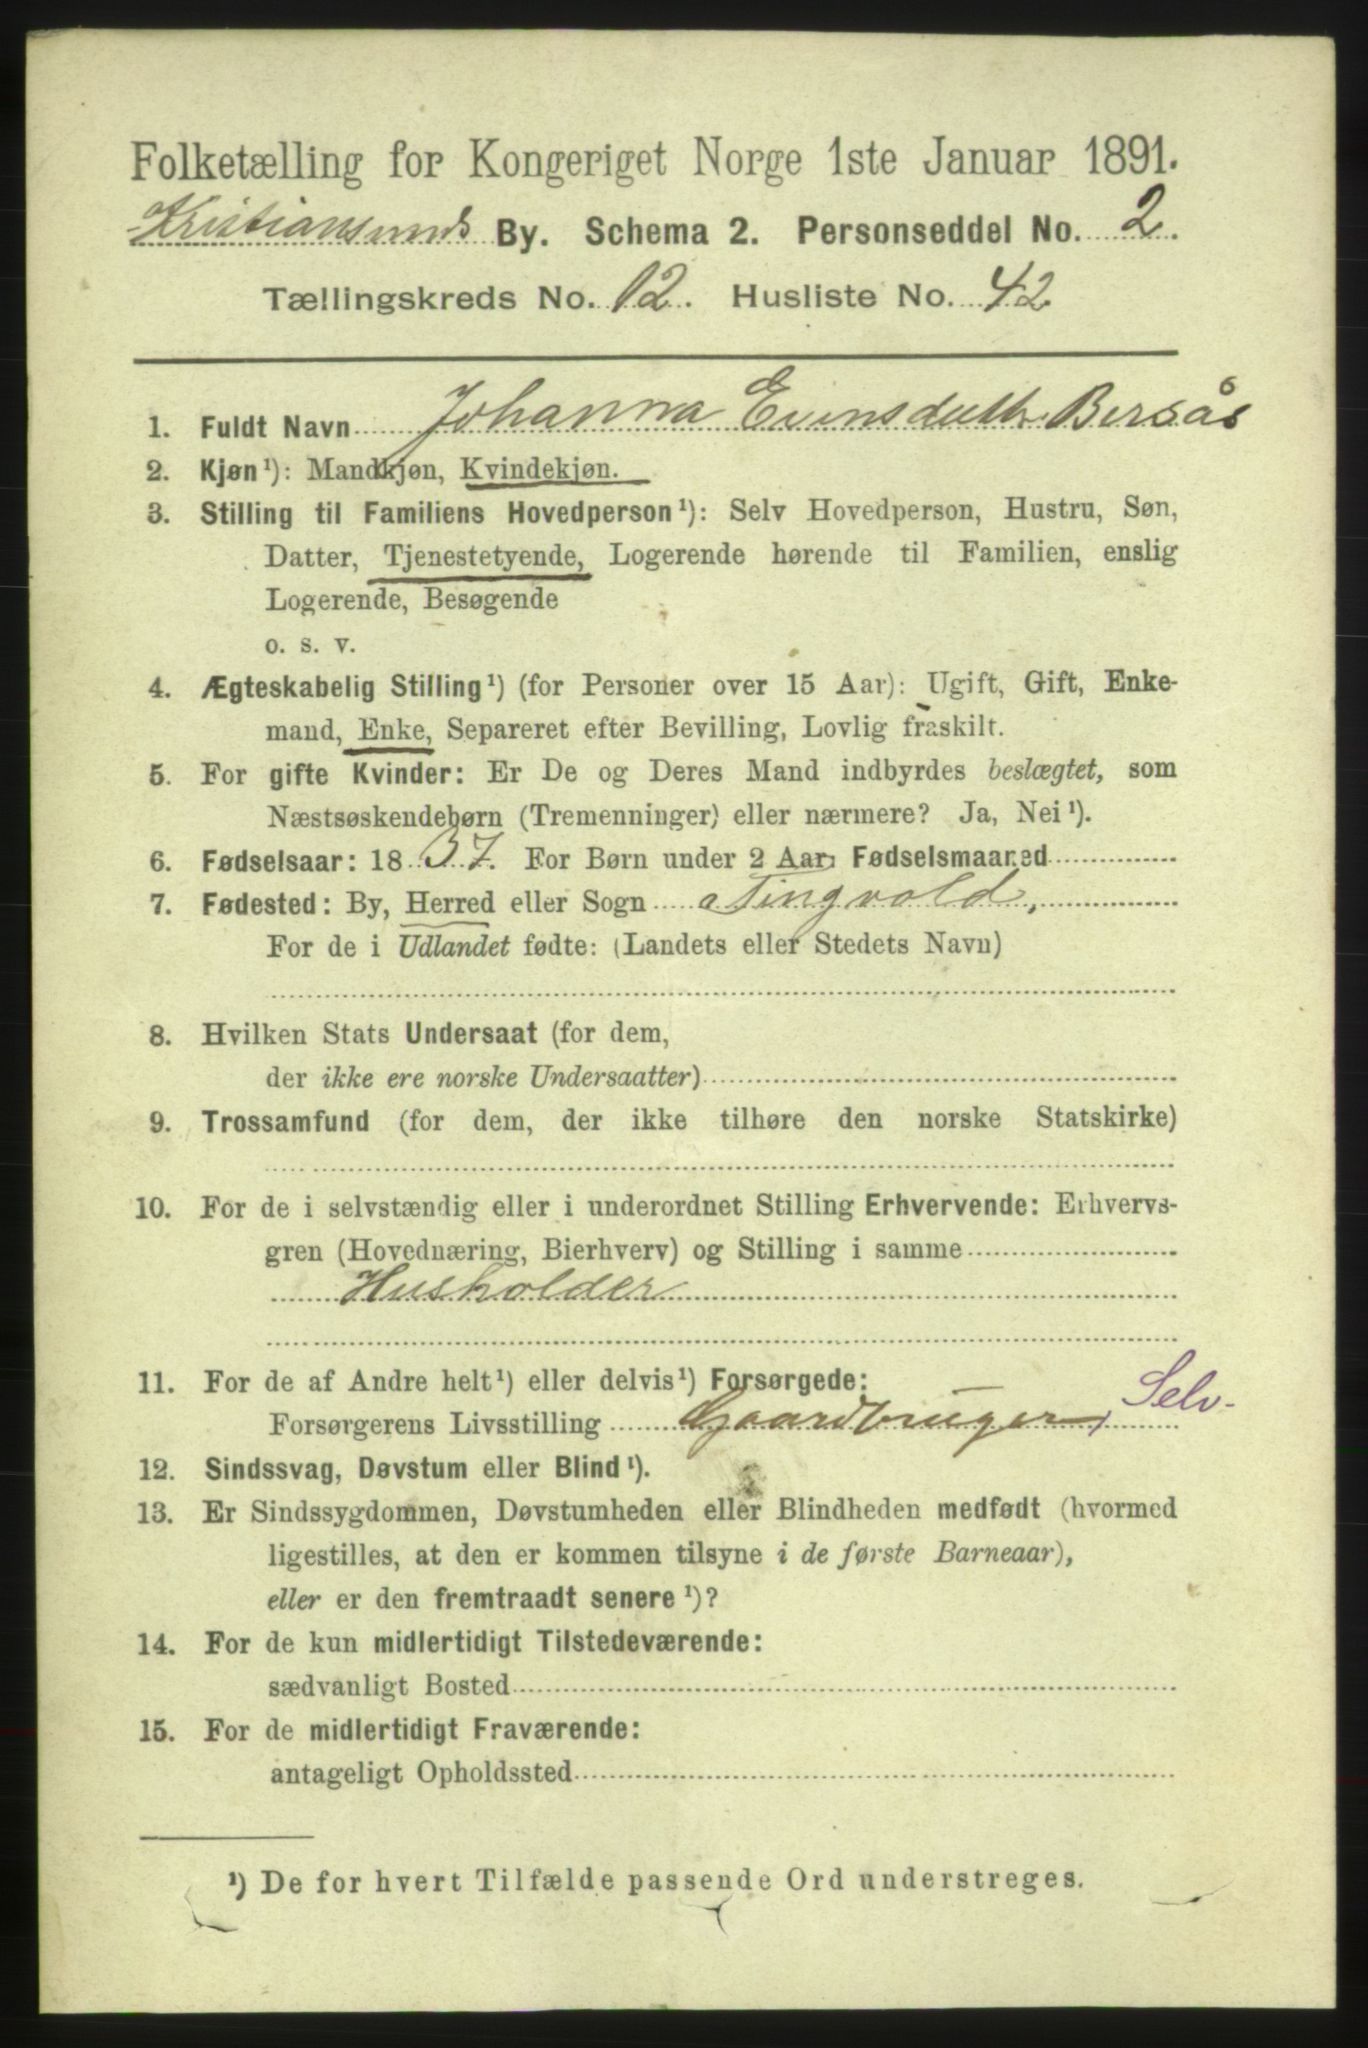 Folketælling for Kongeriget Norge 1ste Januar 1891.
Kristiansunds By. Schema 2. Personseddel No. 2.
Tællingskreds No. 12. Husliste No. 42
1. Fuldt Navn Johanna Evensdatter Bersås
2. Kjøn¹): Mandkjøn, Kvindekjøn.
3. Stilling til Familiens Hovedperson¹): Selv Hovedperson, Hustru, Søn,
Datter, Tjenestetyende, Logerende hørende til Familien, enslig
Logerende, Besøgende
o. s. v.
4. Ægteskabelig Stilling¹) (for Personer over 15 Aar): Ugift, Gift, Enke-
mand, Enke, Separeret efter Bevilling, Lovlig fraskilt.
5. For gifte Kvinder: Er De og Deres Mand indbyrdes beslægtet, som
Næstsøskendebørn (Tremenninger) eller nærmere? Ja, Nei¹).
6. Fødselsaar: 1837. For Børn under 2 Aar: Fødselsmaaned
7. Fødested: By, Herred eller Sogn Tingvold,
For de i Udlandet fødte: (Landets eller Stedets Navn)
8. Hvilken Stats Undersaat (for dem,
der ikke ere norske Undersaatter)
9. Trossamfund (for dem, der ikke tilhøre den norske Statskirke)
10. For de i selvstændig eller i underordnet Stilling Erhvervende: Erhvervs-
gren (Hovednæring, Bierhverv) og Stilling i samme
Husholder
11. For de af Andre helt¹) eller delvis¹) Forsørgede:
Forsørgerens Livsstilling Gaardbruger, Selv-
12. Sindssvag, Døvstum eller Blind¹).
13. Er Sindssygdommen, Døvstumheden eller Blindheden medfødt (hvormed
ligestilles, at den er kommen tilsyne i de første Barneaar),
eller er den fremtraadt senere¹)?
14. For de kun midlertidigt Tilstedeværende:
sædvanligt Bosted
15. For de midlertidigt Fraværende:
antageligt Opholdssted
¹) De for hvert Tilfælde passende Ord understreges.